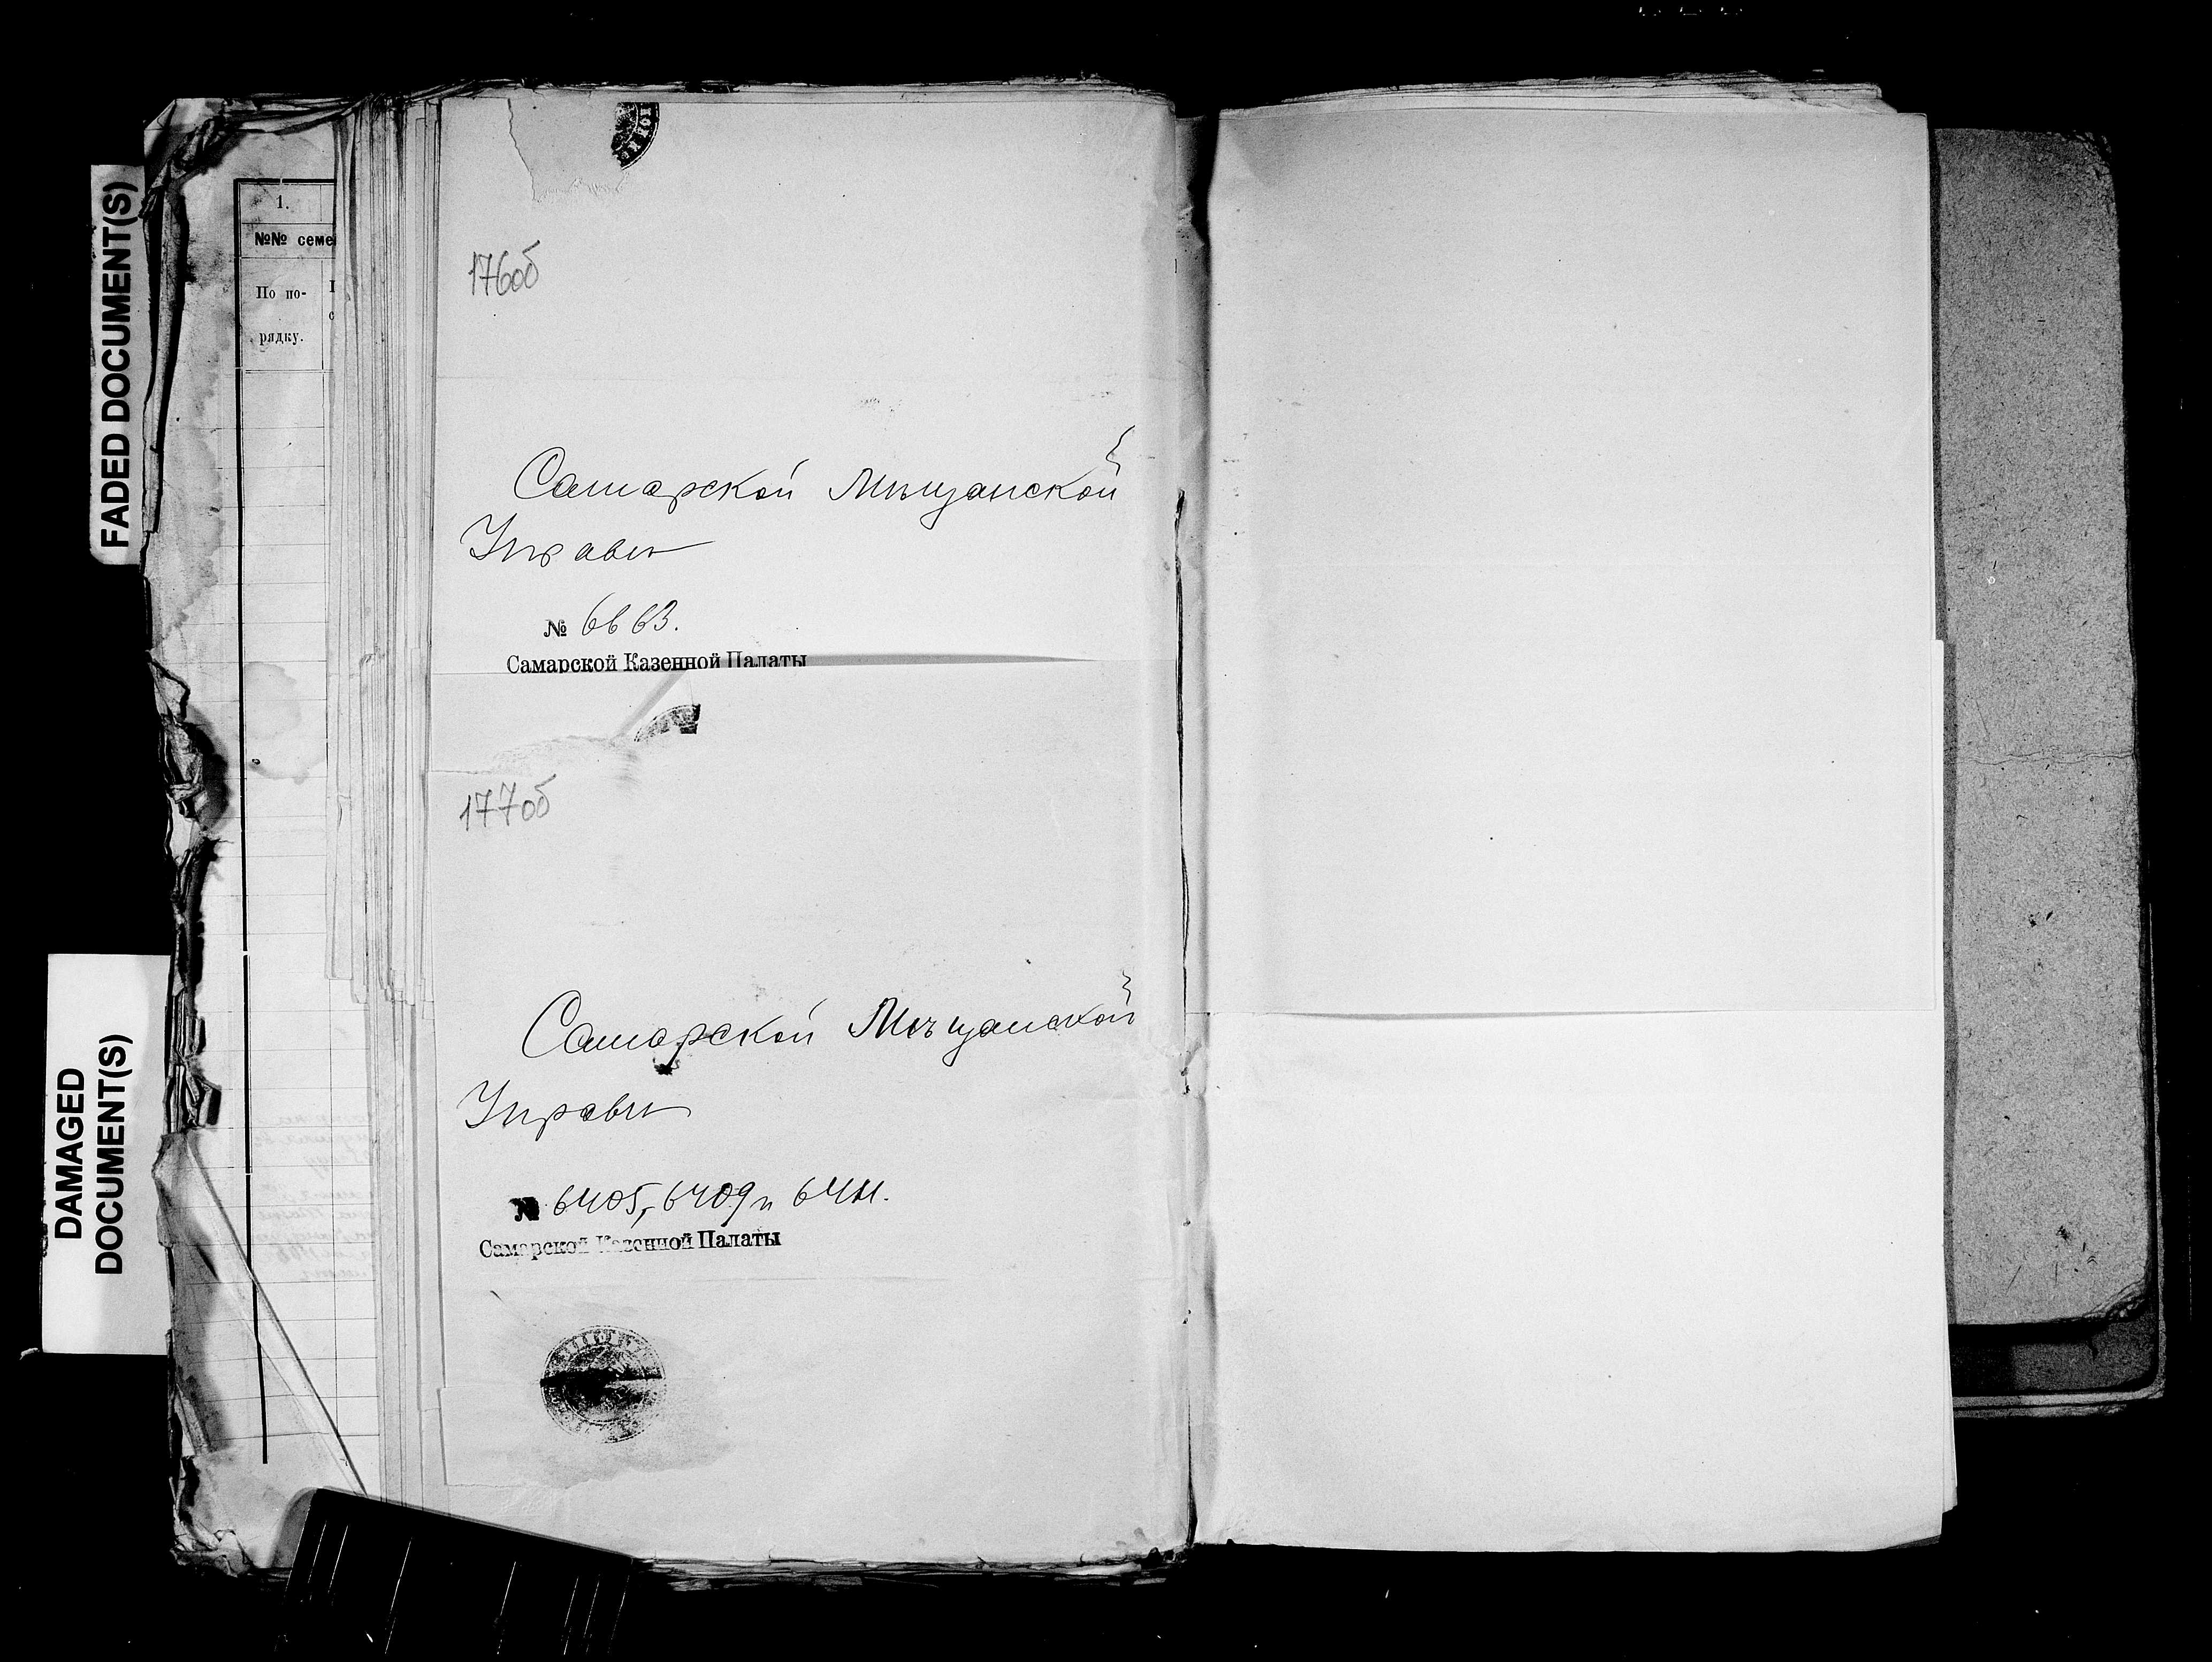 FADED DOCUMENT(S)
DAMAGED
DOCUMENT(S)
1.
№№ семе
По по-
рядку.
176об
Самарской Мѣщанской
Управы
№ 6663.
Самарской Казенной Палаты
177об
Самарской Мѣщанской
Управы
№ 6405, 6409 и 6411.
Самарской Казенной Палаты